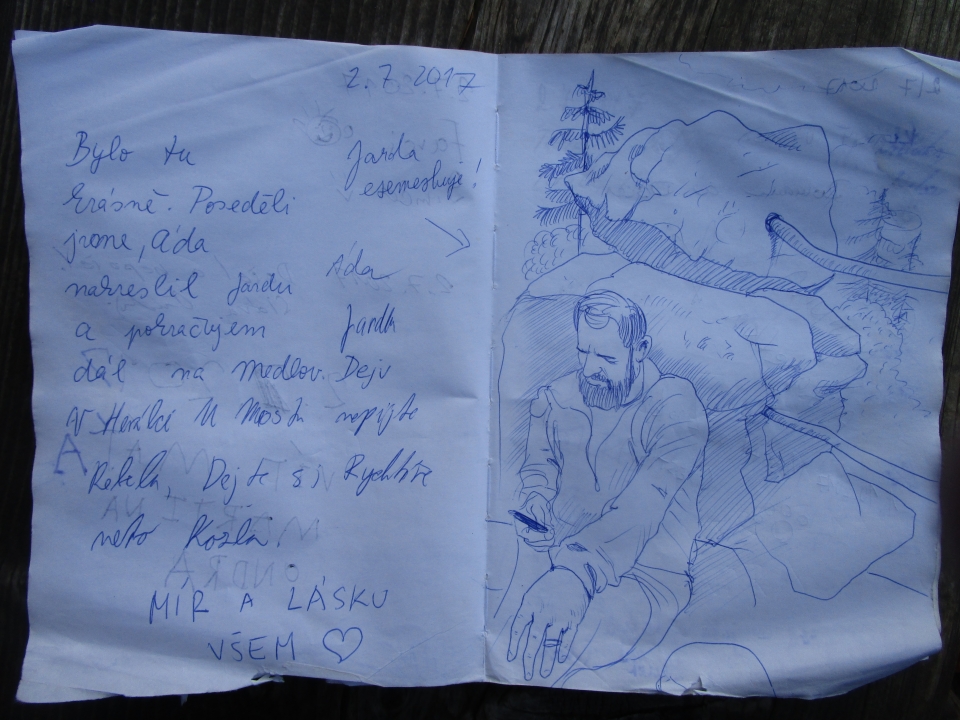 2. 7. 2017
Bylo tu
krásně. Poseděli
jsme, Áďa
nakreslil Jardu
a pokračujem
dál na Medlov. Deju
V Herálci U Mostu nepijte
Rebela, Dejte si Rychtáře
nebo Kozla!
MÍR A LÁSKU
VŠEM ♡
Jarda
esemeskuje!
Áďa
Jarda